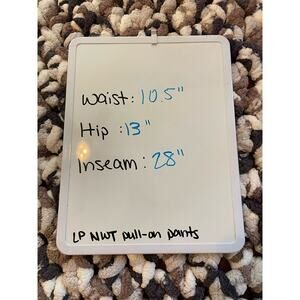 Waist: 10.5"
Hip: 13"
Inseam: 28"
LP NWT pull-on pants